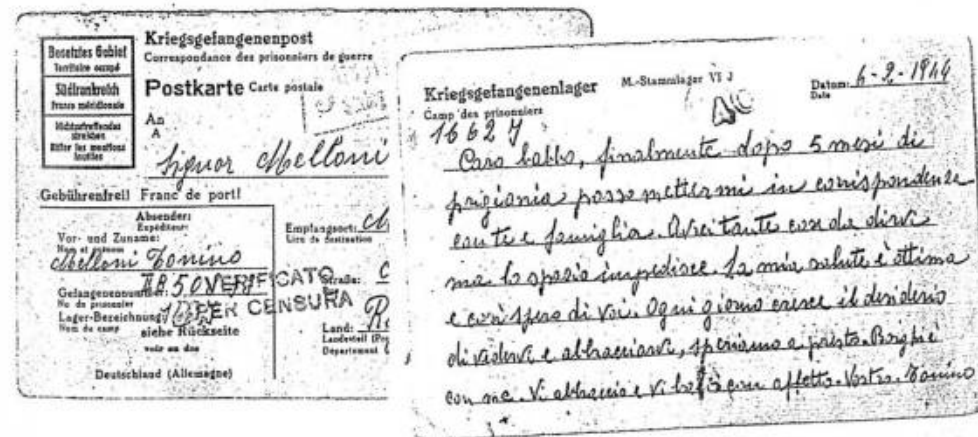 Besetztes Gebiet
Territoire occupé
Südfrankreich
France méridionale
Nichtzutreffendes
streichen
Biffer les mentions
inutiles
Kriegsgefangenenpost
Correspondance des prisonniers de guerre
Postkarte Carte postale
An
A
Signor Melloni
Gebührenfrei! Franc de port!
Absender:
Expéditeur:
Vor- und Zuname:
Nom et prénom
Melloni Tonino
Gefangenennummer:
No du prisonnier
Lager-Bezeichnung:
Nom du camp
siehe Rückseite
voir au dos
Deutschland (Allemagne)
VERIFICATO
PER CENSURA
Empfangsort:
Lieu de destination
Straße:
Land:
Landesteil
Département
Kriegsgefangenenlager
Camp des prisonniers
M.-Stammlager VI J
Datum: 6-2-1944
Date
16627
Caro babbo, finalmente dopo 5 mesi di
prigionia posso mettermi in corrispondenza
con te e famiglia. Avrei tante cose da dirvi
ma lo spazio impedisce. La mia salute è ottima
e così spero di voi. Ogni giorno cresce il desiderio
di vedervi e abbracciarvi, speriamo a presto. Borghi è
con me. Vi abbraccio e vi bacio con affetto. Vostro Tonino